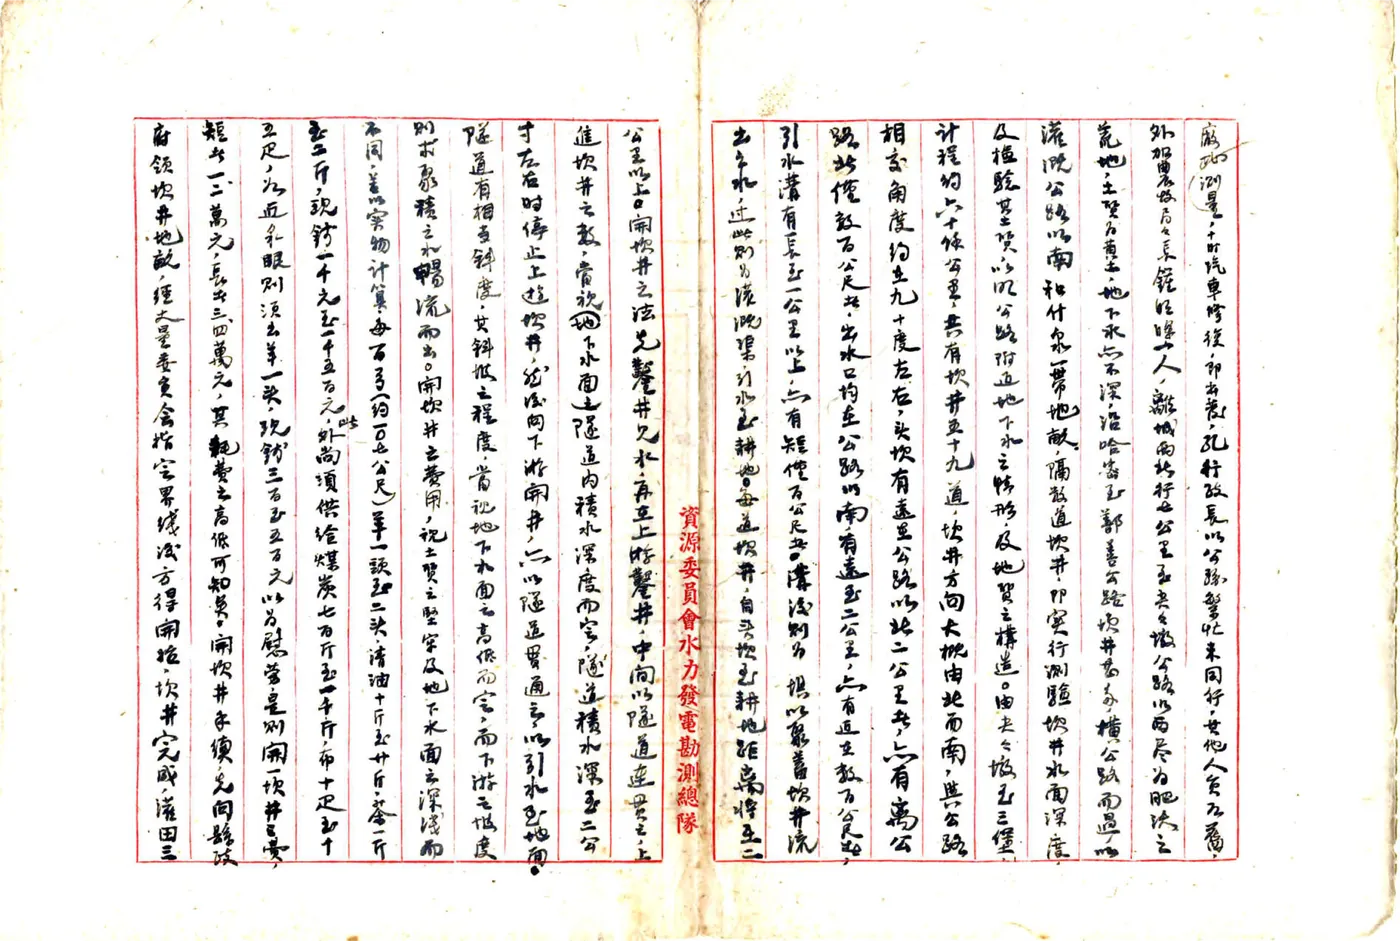 廠地測量，十時汽車修復，即出發，孔行政長以公務繁忙未同行，其他人員亦舊，
外加農牧局長鍾 一人，離城西北行七公里至夾夾墩公路以西盡為肥沃之
荒地，土質為黃土地下水亦不深，沿哈密至鄯善公路坎井甚多，橫公路而過，以
灌溉公路以南和什泉一帶地畝，隔數道坎井，即實行測驗坎井水面深度，
及檢驗其土質，以明公路附近地下水之情形，及地質之構造。由夾夾墩至三堡，
計程約六十餘公里，共有坎井五十九道，坎井方向大概由北而南，與公路
相交角度約在九十度左右，頭坎有遠在公路以北二公里者，亦有離公
路北僅數百公尺者，出水口均在公路以南有遠至二公里，亦有近至數百公尺者，
引水溝有長至一公里以上，亦有短僅百公尺者。溝後則為壩以聚蓄坎井流
出之水，過此則為灌溉渠，引水至耕地。每道坎井，自頭坎至耕地距離將在二
資源委員會水力發電勘測總隊
公里以上。開坎井之法先鑿井見水，再在上游鑿井，中間以隧道連貫之，上
進坎井之數，當視地下水面之隧道內積水深度而定，隧道積水深至二公
寸左右時停止上進坎井，然後向下游開井，亦以隧道貫通之，以引水至地面。
隧道有相當斜度，其斜坡之程度，當視地下水面之高低而定，而下游之坡度
則求聚積之水暢流而出。開坎井之費用，視土質之堅實及地下水面之深淺而
不同，若以實物計算，每百弓（約一〇七公尺）羊一頭至二頭，清油十斤至廿斤，茶一斤
至二斤，現鈔一千元至一千五百元，此外尚須供給煤炭七百斤至一千斤，布十疋至十
五疋，如近水眼則須出羊一頭，現鈔三百至五百元以為慰勞，是則開一坎井之費，
短者一二萬元，長者三、四萬元，其耗費之高低可知矣。開坎井手續，先向縣政
府領坎井地畝，經丈量委員會指定界綫後方得開始，坎井完成，灌田三